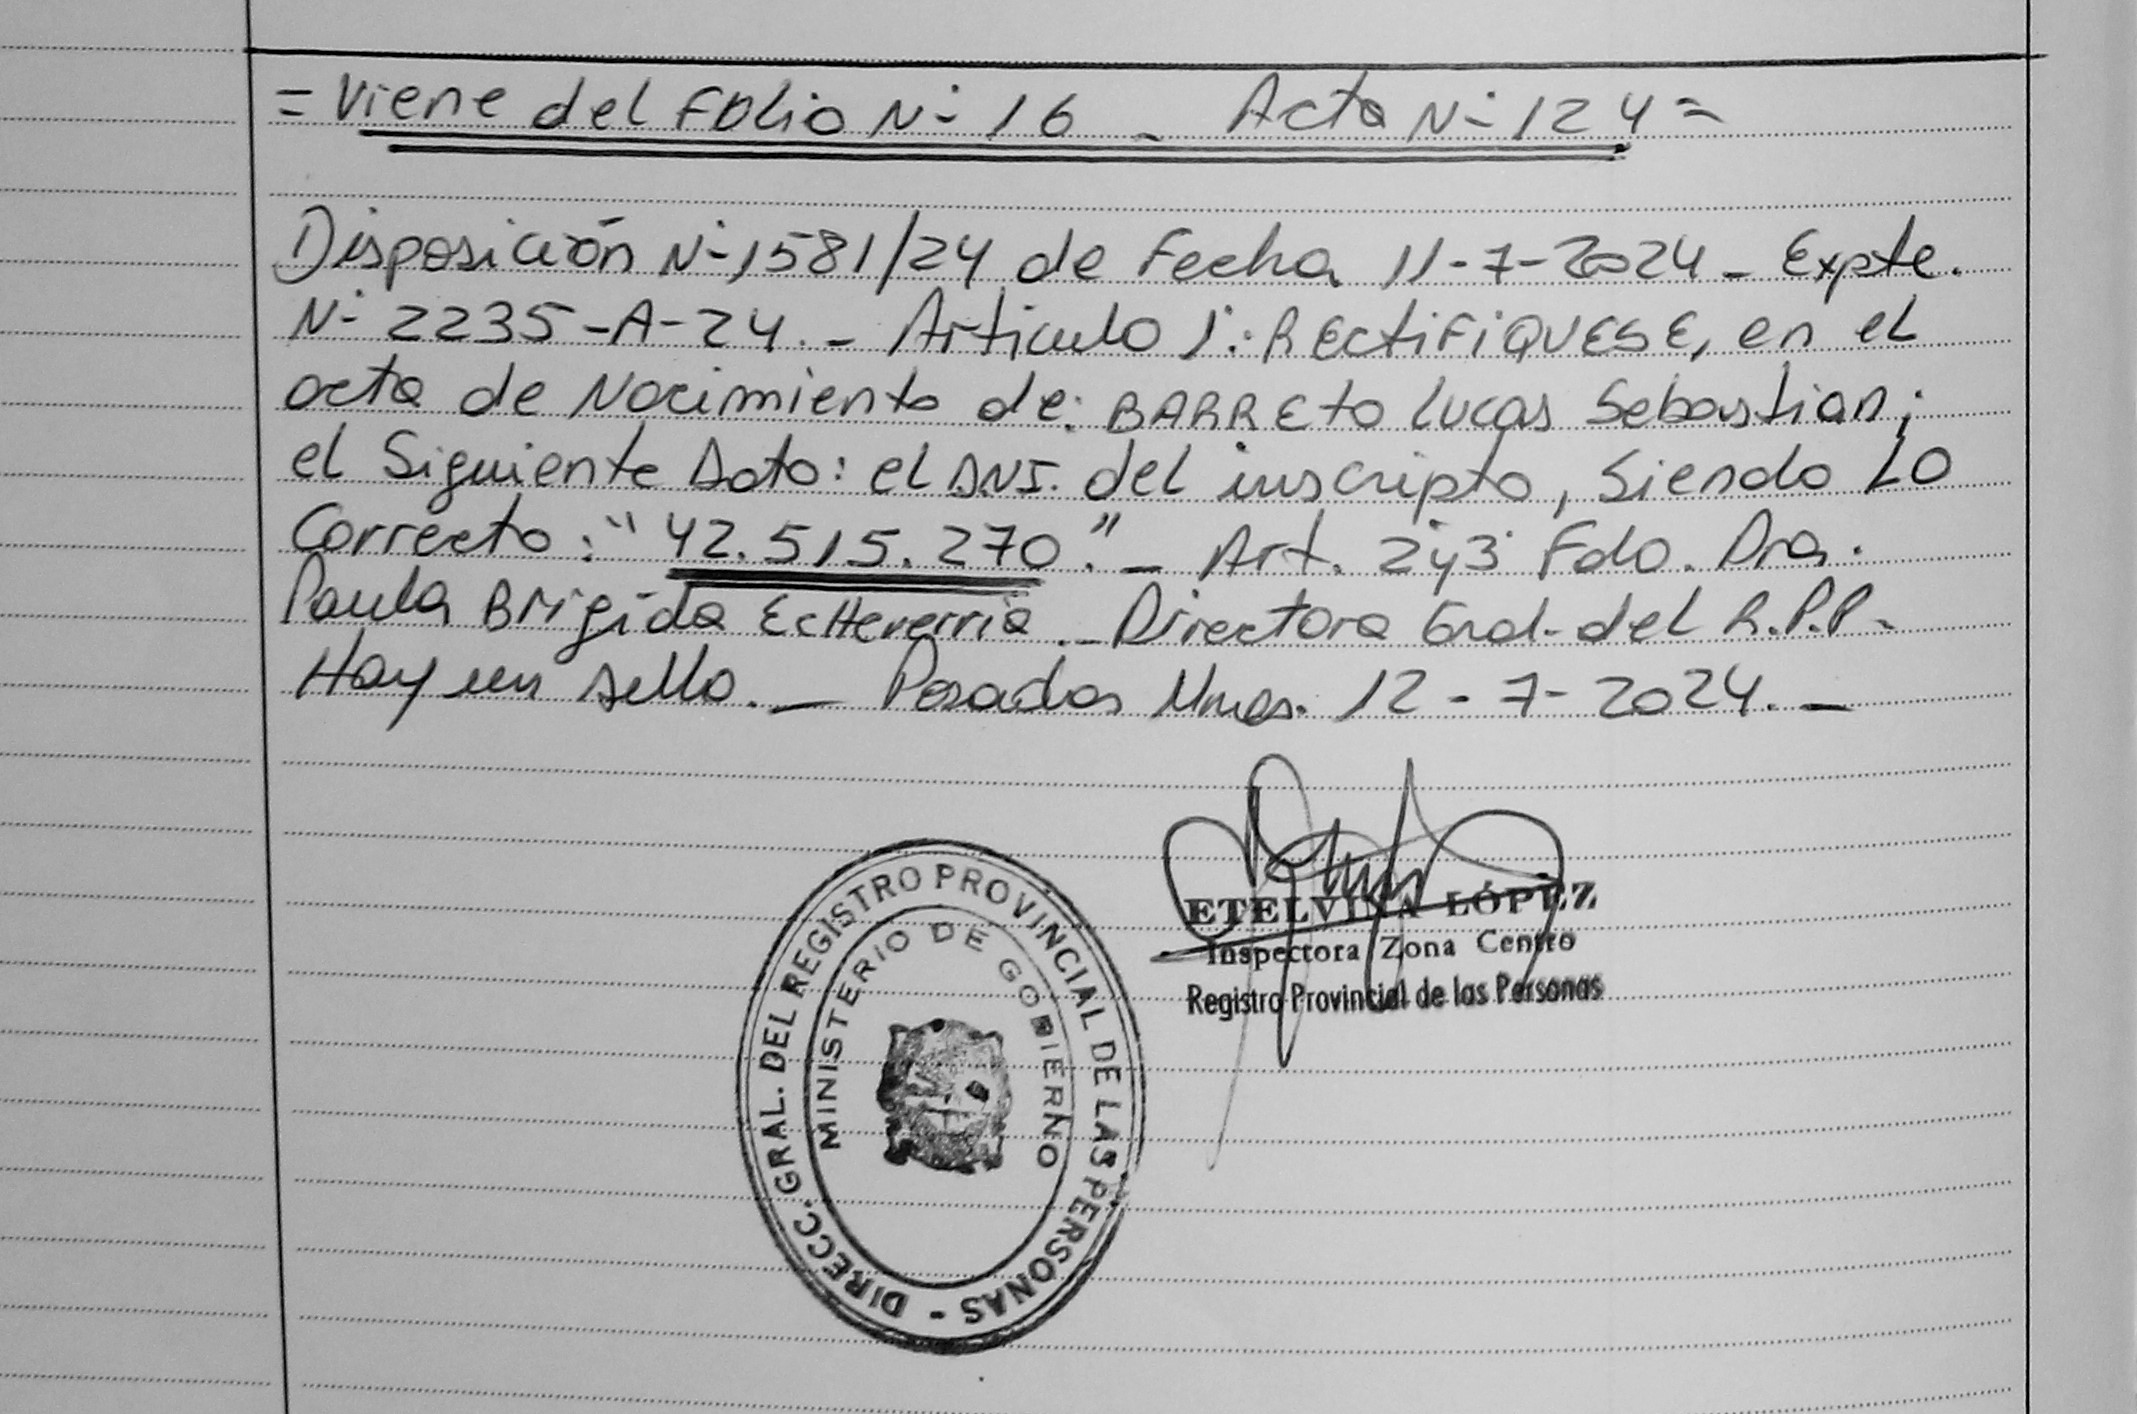 = Viene del Folio N° 16 - Acta N° 124 =
Disposición N° 1581/24 de Fecha 11-7-2024 - Expte.
N° 2235-A-24. - Articulo 1°: RECtiFiQUESE, en el
acta de Nacimiento de: BARREto Lucas Sebastian;
el Siguiente Dato: el DNI. del inscripto, Siendo LO
Correcto: "42.515.270". - Art. 2° y 3° Fdo. Dra.
Paula Brigida Echeverria. - Directora Gral. del R.P.P.
Hay un sello. - Posadas Mnes. 12-7-2024. -
ETELVINA LÓPEZ
Inspectora Zona Centro
Registro Provincial de las Personas
DIRECC. GRAL. DEL REGISTRO PROVINCIAL DE LAS PERSONAS -
MINISTERIO DE GOBIERNO